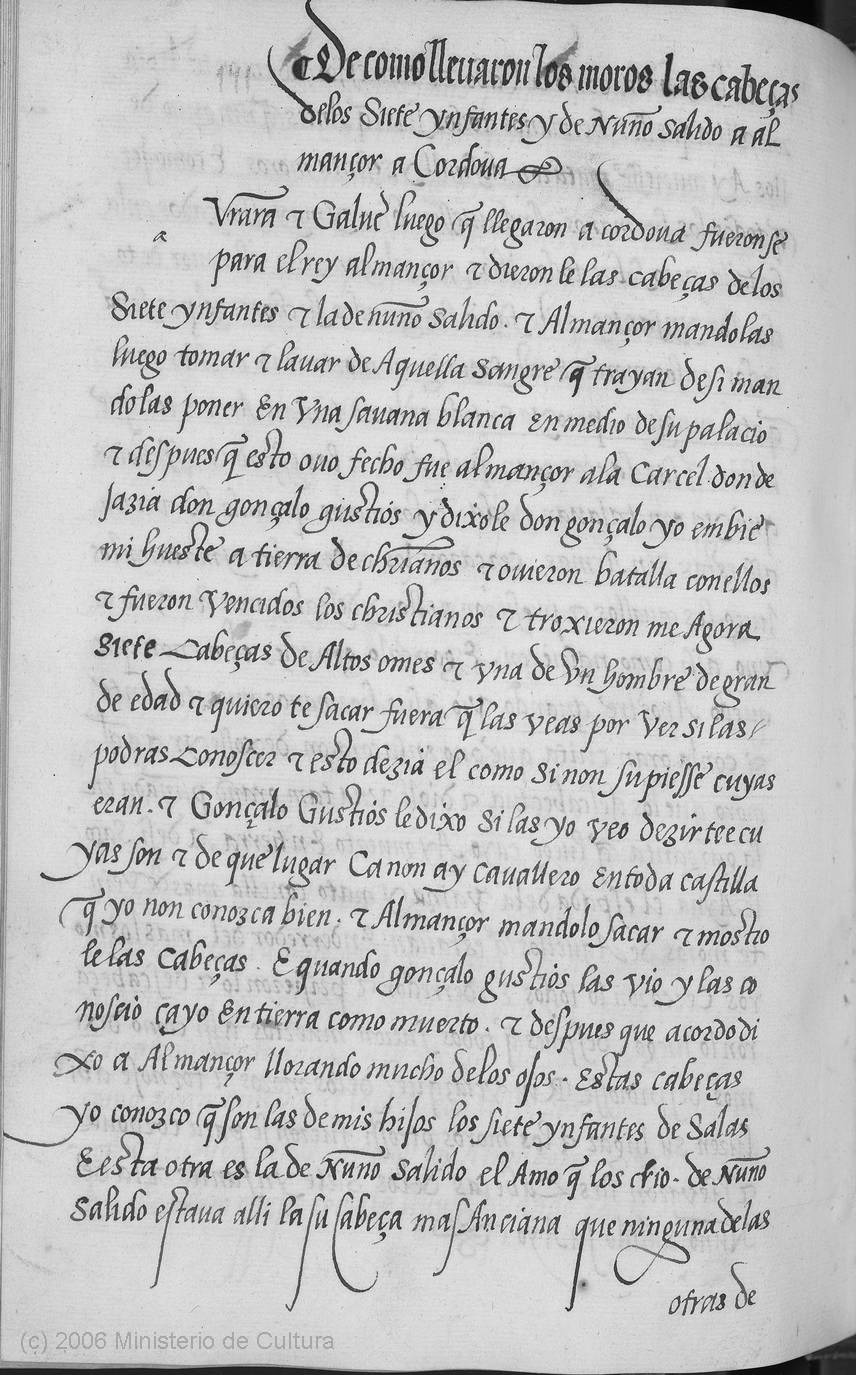 ¶ De como lleuaron los moros las cabeças
delos Siete ynfantes y de Nuño salido a al
mançor a Cordova
a
Vrara & Galue luego q̃ llegaron a cordova fueronse
para el rey almançor & dieron le las cabeças delos
Siete ynfantes & la de nuño salido. & Almançor mando las
luego tomar & lauar de Aquella sangre q̃ trayan desi man
do las poner En Vna savana blanca En medio desu palacio
& despues q̃ esto ouo fecho fue almançor ala Carcel donde
Jazia don gonçalo gustios y dixole don gonçalo yo embie
mi hueste a tierra de chrianos & ovieron batalla con ellos
& fueron Vencidos los christianos & troxieron me Agora
Siete Cabeças de Altos omes & vna de Vn hombre de gran
de edad & quiero te sacar fuera q̃ las veas por Ver si las
podras conoscer & esto dezia el como si non supiesse cuyas
eran. & Gonçalo Gustios le dixo Si las yo veo dezirtee cu
yas son & de que lugar Ca non ay cavallero En toda castilla
q̃ yo non conozca bien. & Almançor mandolo sacar & mostro
le las Cabeças. E quando gonçalo gustios las vio y las co
noscio cayo En tierra como muerto. & despues que acordo di
xo a Almançor llorando mucho delos ojos. Estas cabeças
yo conozco q̃ son las de mis hijos los siete ynfantes de Salas
E esta otra es la de Nuño salido el Amo q̃ los crio. de Nuño
Salido estava alli la su cabeça mas Anciana que ninguna delas
otras de
(c) 2006 Ministerio de Cultura